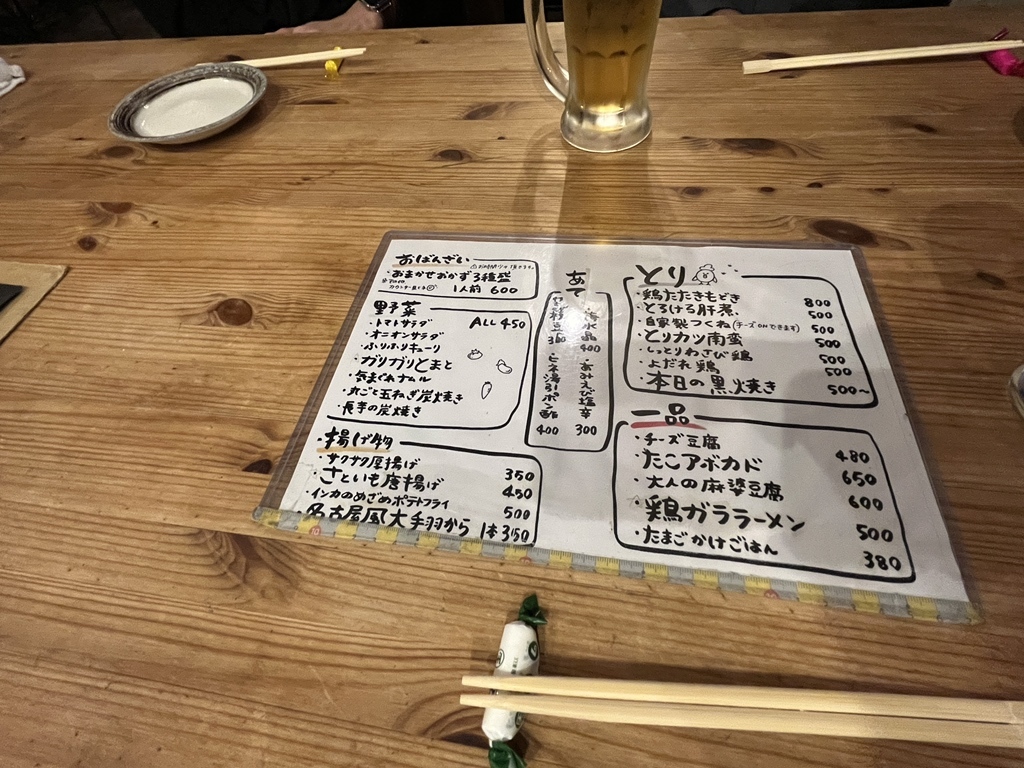 おばんざい
おまかせおかず3種盛
1人前 600
野菜
ALL 450
・トマトサラダ
・オニオンサラダ
・ふりふりキューリ
・ガリガリとまと
・気まぐれナムル
・丸ごと玉ねぎ炭焼き
・長芋の炭焼き
・揚げ物
・サクサク厚揚げ 350
・さといも唐揚げ 450
・インカのめざめポテトフライ 500
・名古屋風大手羽から 1本350
あて
400
・あみえび塩辛 300
枝豆 350
湯引ポン酢 400
とり
・鶏たたきもどき 800
・とろける肝煮 500
・自家製つくね(チーズONできます) 500
・とりカツ南蛮 500
・しっとりわさび鶏 500
・よだれ鶏 500
・本日の黒焼き 500～
一品
・チーズ豆腐 480
・たこアボカド 650
・大人の麻婆豆腐 600
・鶏ガララーメン 500
・たまごかけごはん 380